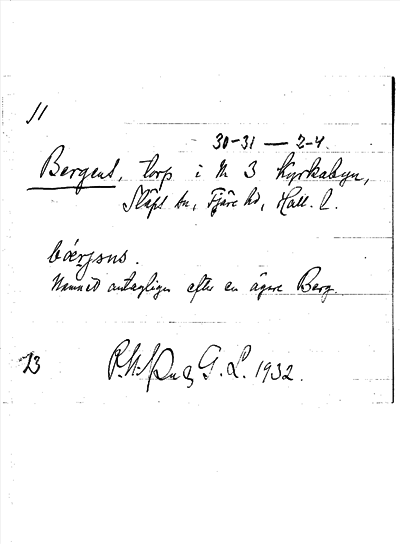 11
30-31 — 2-4.
Bergens, torp i N 3 Kyrkobyn,
Släps sn, Fjäre hd, Hall. l.
bǽrjəns.
Namnet antagligen efter en ägare Berg.
23 G. L. 1932.